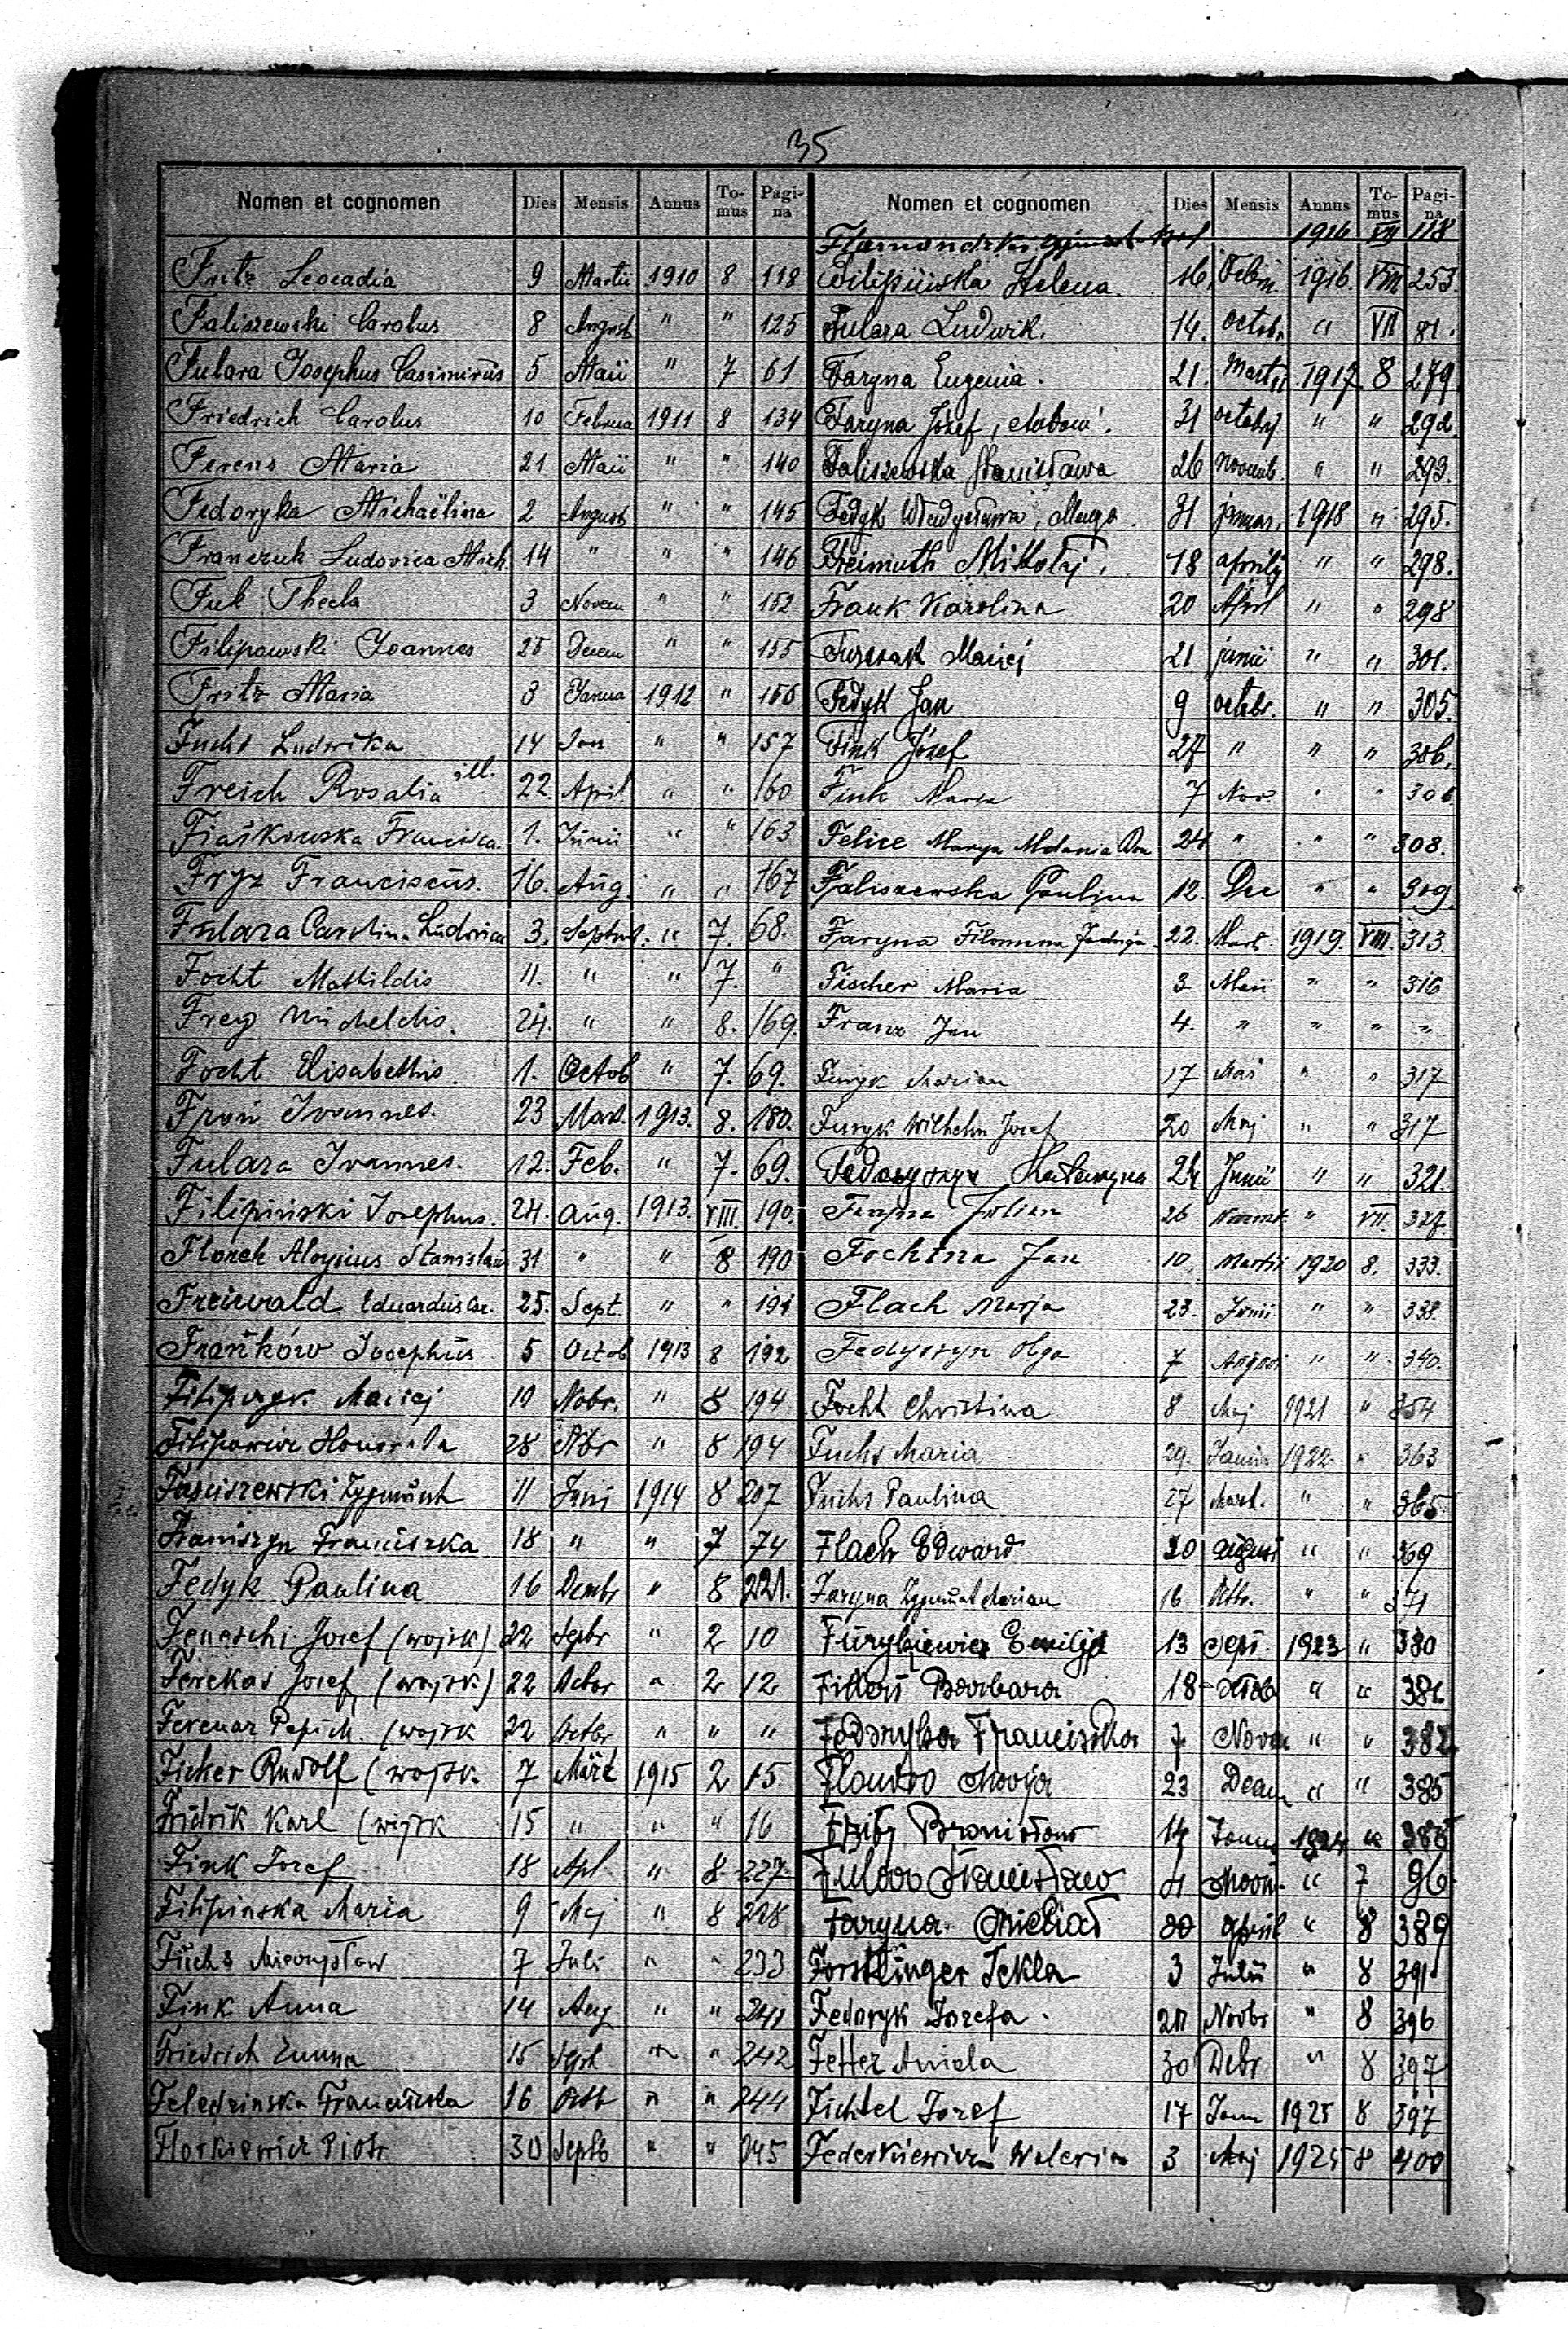 35
Nomen et cognomen Dies Mensis Annus To-mus Pagi-na
Fritz Leocadia 9 Martii 1910 8 118
Faliszewski Carolus 8 August " " 125
Fulara Josephus Casimirus 5 Maii " 7 61
Friedrich Carolus 10 Februa 1911 8 134
Ferens Maria 21 Maii " " 140
Fedoryka Michaëlina 2 August " " 145
Franczuk Ludovica Mich. 14 " " " 146
Fuk Thecla 3 Novem " " 152
Filipowski Joannes 25 Decem " " 155
Fritz Maria 3 Janua 1912 " 156
Fuchs Ludwika 14 Jan " " 157
Freich Rosalia ill. 22. April " " 160
Fiaśkowska Francisca 1. Junii " " 163
Fryz Franciscus. 16. Aug. " " 167
Fulara Carolina Ludovica 3. Septembr. " 7. 68.
Focht Mathildis 11. " " 7. "
Frey Micheldis. 24. " " 8. 169.
Focht Elisabethis. 1. Octob " 7. 69.
Froń Joannes. 23 Mart. 1913. 8. 180.
Fulara Joannes. 12. Feb. " 7. 69.
Filipinski Josephus. 24. Aug. 1913. VIII. 190.
Florek Aloysius Stanislaus 31 " " 8 190
Freiwald Eduardus Car. 25. Sept. " " 191
Frańków Josephus 5 Octob 1913 8 192
Filipczyk Maciej 10 Nobr. " 8 194
Filipowicz Honorata 28 Nbr " 8 194
Zygmunt 11 Juni 1914 8 207
Franciszka 18 " " 7 74
Fedyk Paulina 16 Decmbr " 8 221.
Feneschi Josef (wojsk) 22 Sepbr " 2 10
Ferekas Josef (wojsk) 22 Octbr " 2 12
Ferenar (wojsk 22 Octbr " " "
Ficher Rudolf (wojsk. 7 März 1915 2 15
Fridrik Karl (wojsk 15 " " " 16
Fink Josef 18 Apl " 8 227
Filipinska Maria 9 Maj " 8 228
Fuchs Mieczysław 7 Juli " " 233
Fink Anna 14 Aug " " 241
Friedrich Emma 15 Sept " " 242
Feledzinska Franciszka 16 Octb " " 244
Florkiewicz Piotr 30 Septb " " 245
Nomen et cognomen Dies Mensis Annus To-mus Pagi-na
1916 VII 118
Filipińska Helena. 16. Febru. 1916. VIII 253.
Fulara Ludwik. 14. octobr. " VII 81.
Faryna Eugenia. 21. Martii 1917. 8 279.
Faryna Józef, 31 octobr " " 292.
Faliszewska Stanisława 26 Novemb. " " 293.
Fedyk Władysława, 31 januar. 1918 " 295.
Freimuth Mikołaj, 18 aprilis " " 298.
Frank Karolina 20 April " " 298
Maciej 21 junii " " 301.
Fedyk Jan 9 octobr. " " 305.
Fink Józef 27 " " " 306.
Fink Maria 7 Nov. " " 306
Felice Marya 24 " " " 308.
Faliszewska Paulina 12 Dec " " 309
Faryna Filomena Jadwiga 22. Mart. 1919. VIII. 313.
Fischer Maria 3 Maii " " 316
Franz Jan 4. " " " "
Furyk Marian 17 Mai " " 317
Furyk Wilhelm Josef 20 Maj " " 317
Katarzyna 24 Junii " " 321.
Faryna Julian 26 Novemb. " VII. 327.
Fochtna Jan 10 Martii 1920 8. 333.
Flach Marja 23. Junii " " 338.
Fedyszyn Olga 7 August " " 340.
Focht Christina 8 Maj 1921 " 354
Fuchs Maria 29. Janu 1922 " 363
Fuchs Paulina 27 Mart. " " 365.
Flach Edward 20 August " " 369
Faryna Zygmunt Marian 16 Octb. " " 371
Furykiewicz Emilja 13 Sept. 1923 " 380
Barbara 18 Octob " " 381
Fedoryka Franciszka 7 Novem " " 382
23 Decem " " 385
Bronisław 14 1924 " 388
Stanisław 4 " 7 96
Faryna Michał 20 April " 8 389
Forstlinger Tekla 3 Julii " 8 391
Fedoryk Jozefa. Novbr " 8 396
Fetter Aniela 30 Debr " 8 397
Fichtel Jozef 17 Janu 1925 8 397
Federkiewicz Waleria 3 Maj 1925 8 400